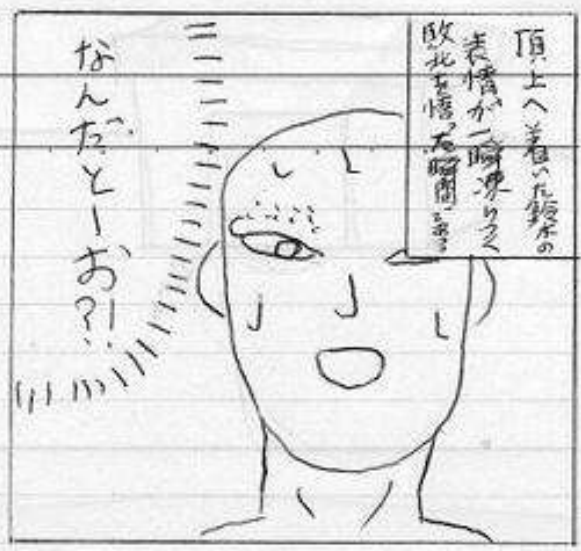 頂上へ着いた鈴木の
表情が一瞬凍りつく
敗北を悟った瞬間である
なんだとーお?!